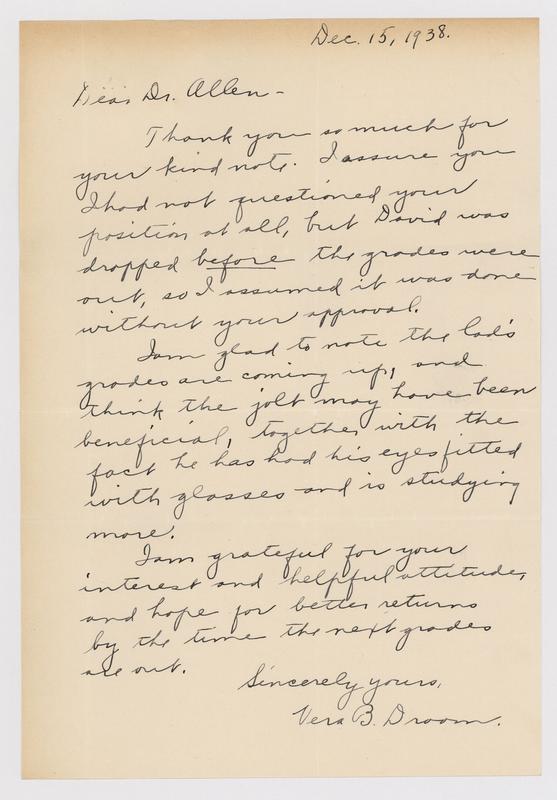 Dec. 15, 1938.
Dear Dr. Allen -
Thank you so much for
your kind note. I assure you
I had not questioned your
position at all, but David was
dropped before the grades were
out, so I assumed it was done
without your approval.
I am glad to note the lad's
grades are coming up, and
think the jolt may have been
beneficial, together with the
fact he has had his eyes fitted
with glasses and is studying
more.
I am grateful for your
interest and helpful attitude,
and hope for better returns
by the time the next grades
are out.
Sincerely yours,
Vera B. Droom.